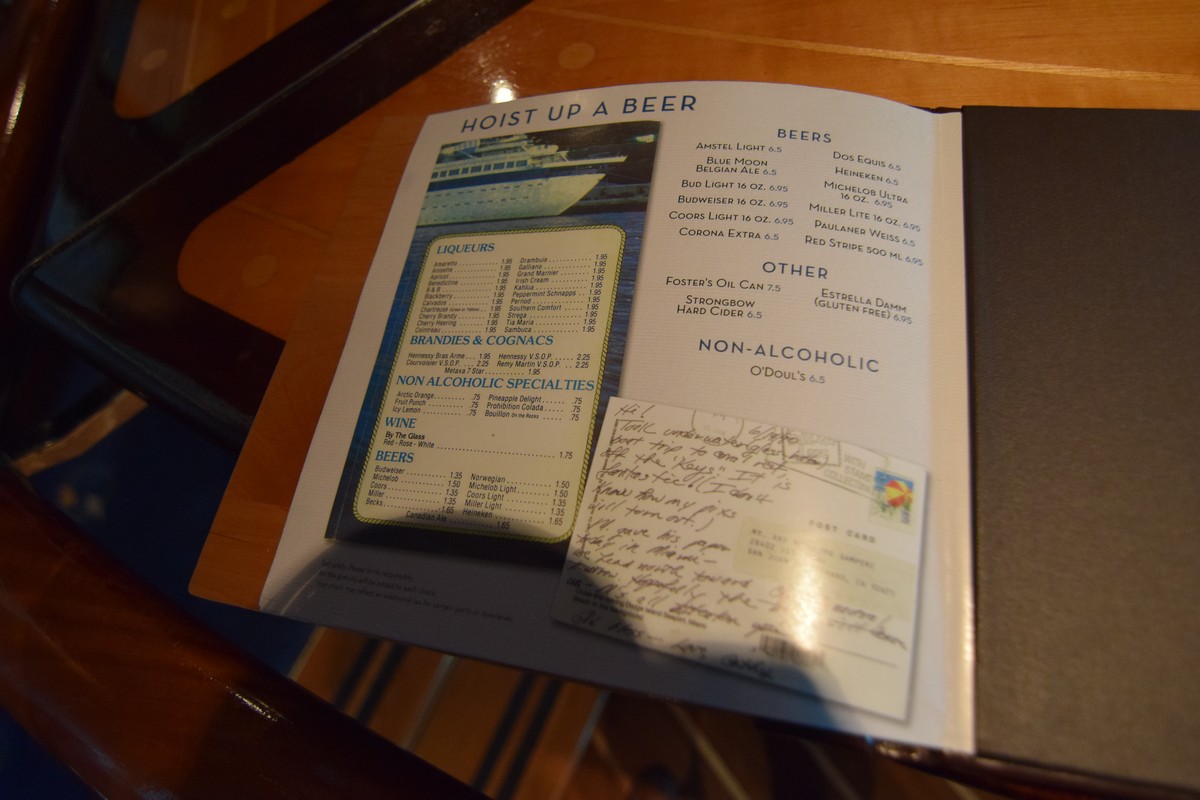 HOIST UP A BEER
LIQUEURS
Amaretto 1.95
Anisette 1.95
Apricot 1.95
Benedictine 1.95
B & B 1.95
Blackberry 1.95
Calvados 1.95
Chartreuse 1.95
Cherry Brandy 1.95
Cherry Heering 1.95
Cointreau 1.95
Drambuie 1.95
Galliano 1.95
Grand Marnier 1.95
Irish Cream 1.95
Kahlua 1.95
Peppermint Schnapps 1.95
Pernod 1.95
Southern Comfort 1.95
Strega 1.95
Tia Maria 1.95
Sambuca 1.95
BRANDIES & COGNACS
Hennessy Bras Arme 1.95
Courvoisier V.S.O.P. 2.25
Hennessy V.S.O.P. 2.25
Remy Martin V.S.O.P. 2.25
Metaxa 7 Star 1.95
NON ALCOHOLIC SPECIALTIES
Arctic Orange .75
Fruit Punch .75
Icy Lemon .75
Pineapple Delight .75
Prohibition Colada .75
Bouillon On the Rocks .75
WINE
By The Glass
Red - Rose - White 1.75
BEERS
Budweiser 1.35
Michelob 1.50
Coors 1.35
Miller 1.35
Becks 1.65
Norwegian 1.50
Michelob Light 1.50
Coors Light 1.35
Miller Light 1.35
Heineken 1.65
Canadian Ale 1.65
BEERS
AMSTEL LIGHT 6.5
BLUE MOON
BELGIAN ALE 6.5
BUD LIGHT 16 OZ. 6.95
BUDWEISER 16 OZ. 6.95
COORS LIGHT 16 OZ. 6.95
CORONA EXTRA 6.5
DOS EQUIS 6.5
HEINEKEN 6.5
MICHELOB ULTRA
16 OZ. 6.95
MILLER LITE 16 OZ. 6.95
PAULANER WEISS 6.5
RED STRIPE 500 ML 6.95
OTHER
FOSTER'S OIL CAN 7.5
STRONGBOW
HARD CIDER 6.5
ESTRELLA DAMM
(GLUTEN FREE) 6.95
NON-ALCOHOLIC
O'DOUL'S 6.5
Hi!
Took underwater glass
boat trip to
off the "Keys" It is
fantastic! (I don't
know how my pixs
will turn out.)
gave his paper
in Miami—
we head north toward
POST CARD